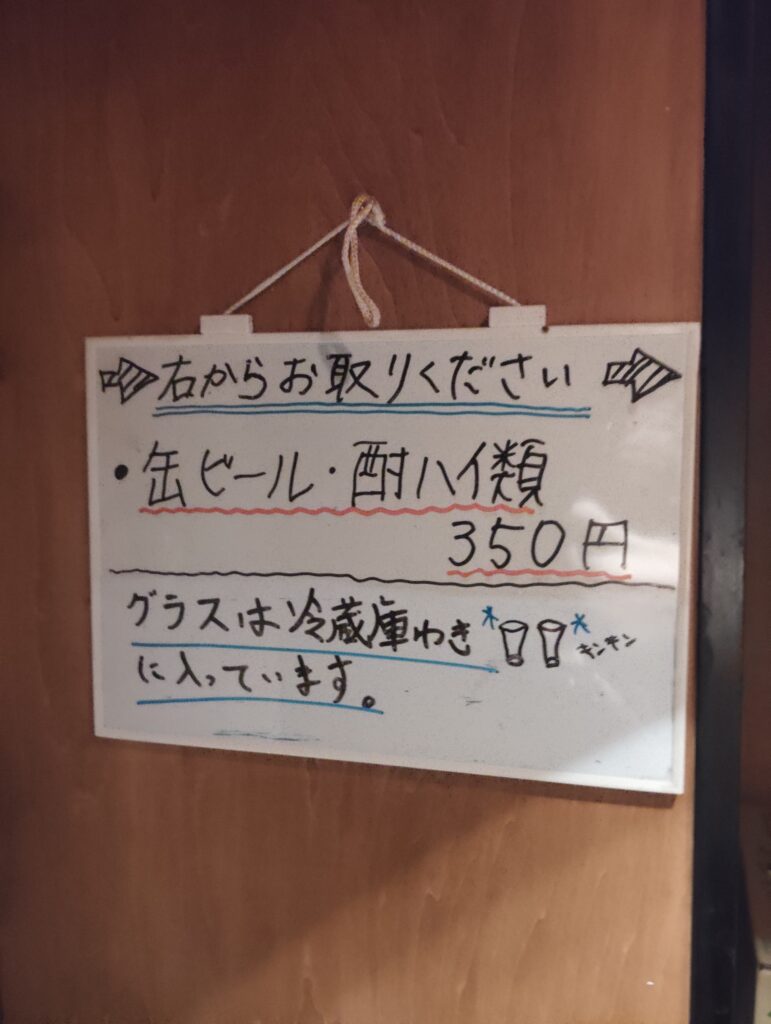 右からお取りください
・缶ビール・酎ハイ類
350円
グラスは冷蔵庫わき
キンキン
に入っています。